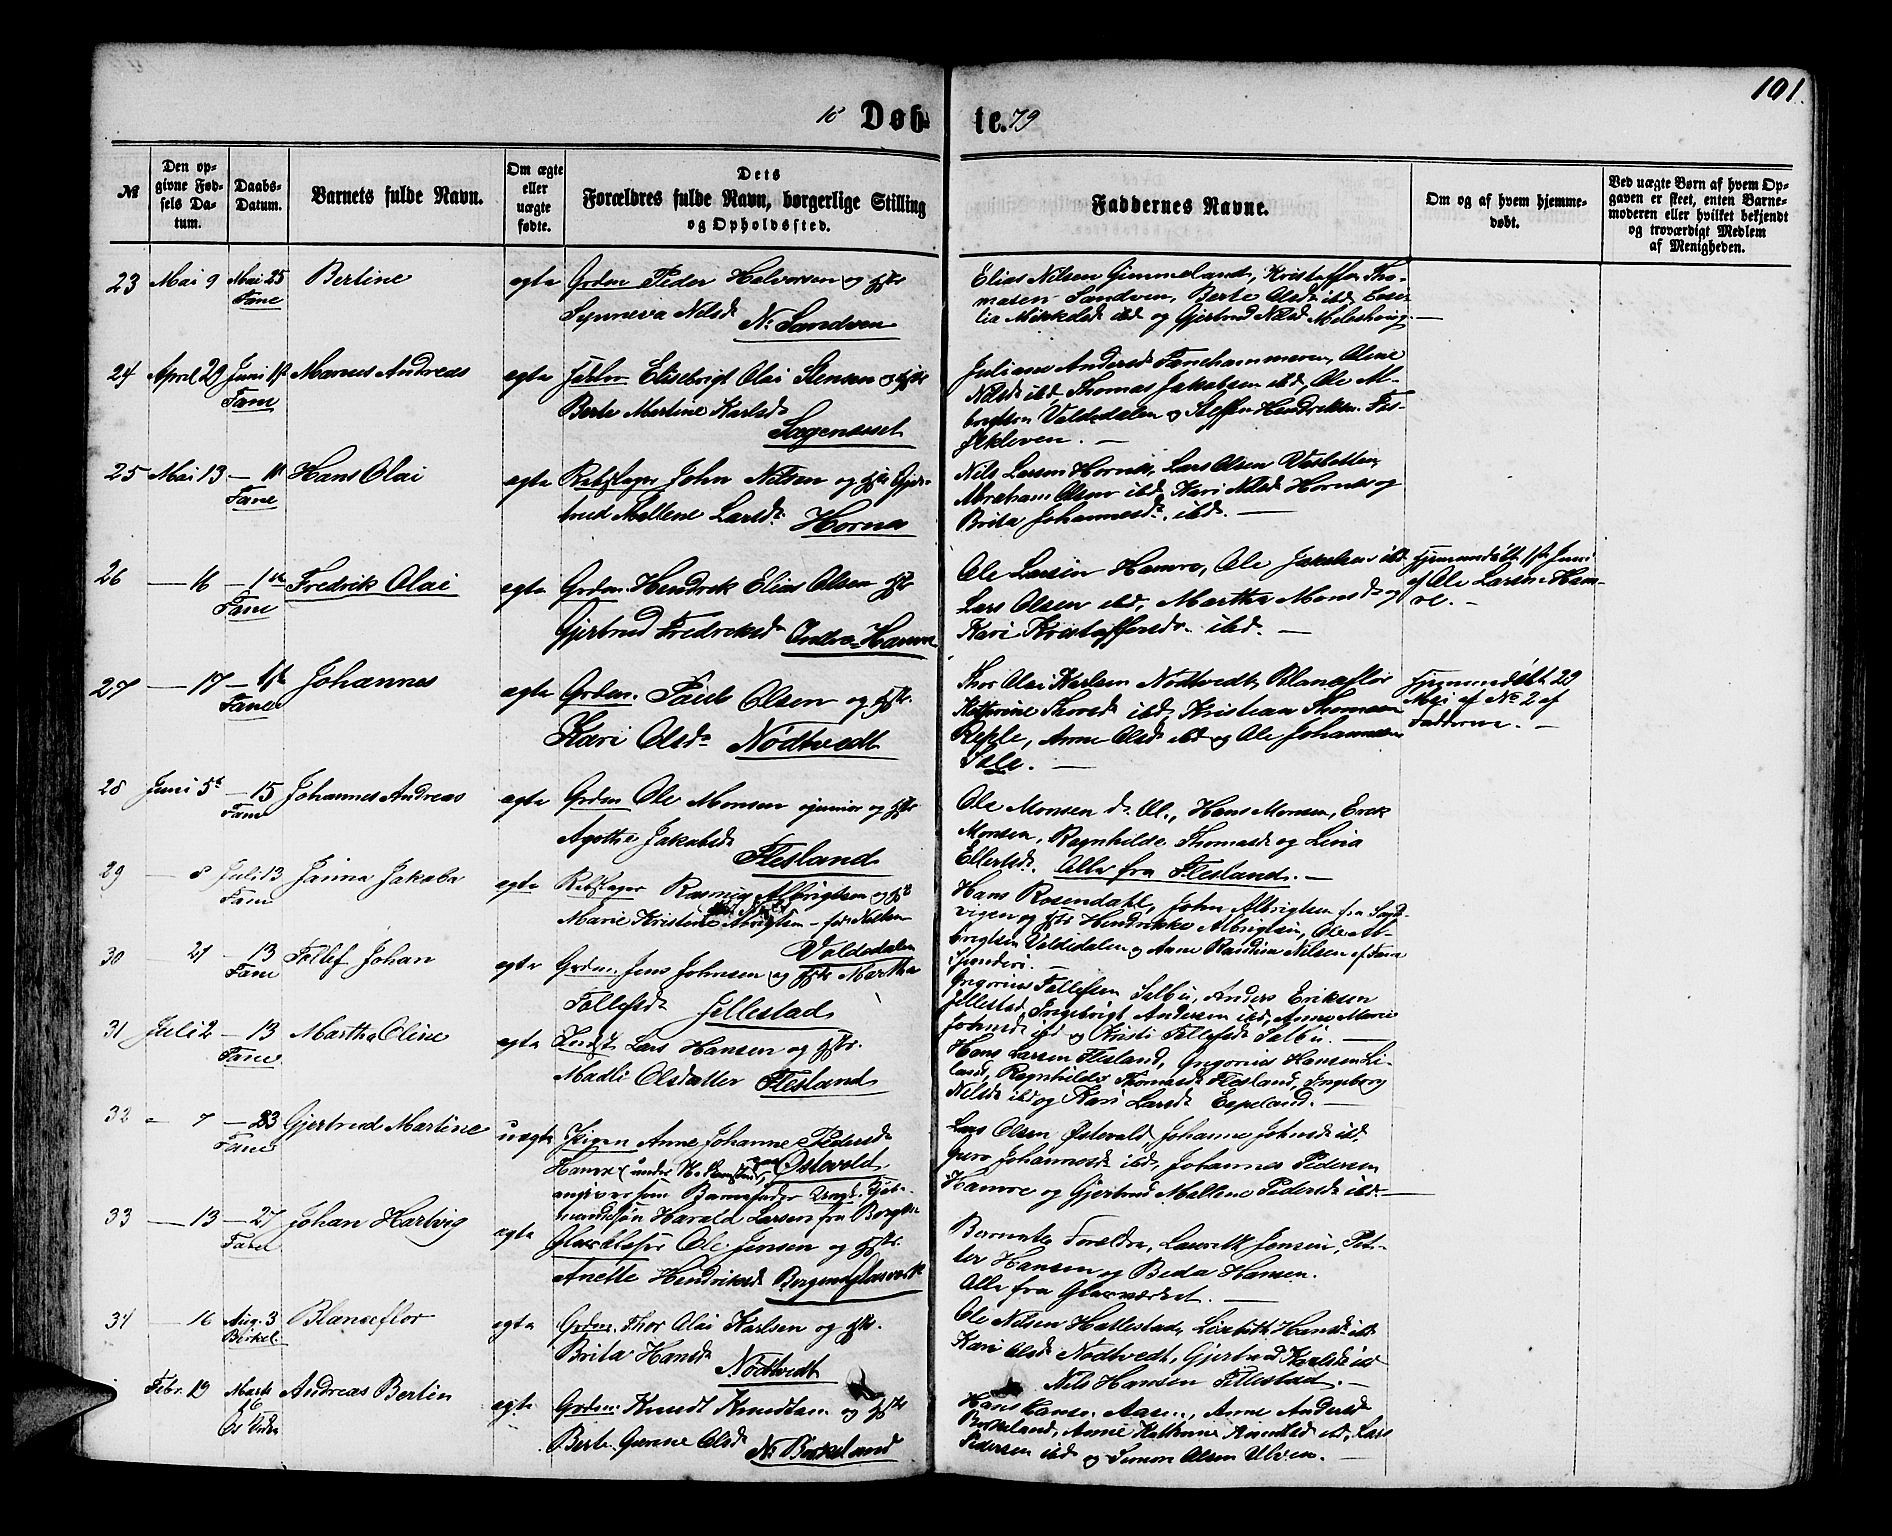 101.
18 Døb- te. 79
№
Den op-
givne Fød-
sels Da-
tum.
Daabs-
Datum.
Barnets fulde Navn.
Om ægte
eller
uægte
fødte.
Dets
Forældres fulde Navn, borgerlige Stilling
og Opholdssted.
Faddernes Navne.
Om og af hvem hjemme-
døbt.
Ved uægte Børn af hvem Op-
gaven er skeet, enten Barne-
moderen eller hvilket bekjendt
og troværdigt Medlem
af Menigheden.
23 Mai 9 Mai 25 Fane Bertine
egte Grdm. Peder Halvorsen og
Synneva Nilsd N. Sandven
Elias Nilsen Gimmeland, Kristoffer Tho-
masen Sandven, Berte Olsd ibd,
lia Mikkelsd ibd og Gjertrud Nilsd
24 April 29 Juni 1st Fane Marnus Andreas
egte Elisebrigt Olai Stensen og
Berte Martine Karlsd
Sagenesset
Juliane Andersd Fanehammeren, Oline
Nilsd ibd, Thomas Jakobsen ibd, Ole Al-
brigtsen Valdedalen og Steffen Hendriksen Fos-
sekleven. —
25 Mai 13 — 1st Fane Hans Olai
egte Rebslager John Nilsen og Gjer-
trud Mallene Larsd Hornæs
Nils Larsen Hornæs, Lars Olsen
Abraham Olsen ibd, Kari Nilsd Hornæs og
Brita Johannesd. ibd. —
26 — 16 — 1st Fane Fredrik Olai
egte Grdm. Hendrik Elias Olsen
Gjertrud Fredriksd Indre Hamre
Ole Larsen Hamre, Ole Jakobsen ibd
Lars Olsen ibd, Martha Monsd og
Kari Kristoffersd. ibd. —
Hjemmedøbt 1st Juni
af Ole Larsen Ham-
re. —
27 — 17 — 1st Fane Johannes
egte Grdm. Paul Olsen og
Kari Olsd. Nödtvedt
Thor Olai Karlsen Nödtvedt, Blanseflor
Kathrine Thorsd ibd, Kristian Thomsen
Reple, Anne Olsd ibd og Ole Johannessen
Sale. —
Hjemmedöbt 29
Mai af No 2 af
Fadderne. —
28 Juni 5t — 15 Fane Johannes Andreas
egte Grdm Ole Monsen junior og
Agathe Jakobsd Flesland
Ole Monsen d. Æl., Hans Monsen, Erik
Monsen, Ragnhilde Thomasd og Lina
Ellertsd. Alle fra Flesland. —
29 — 8 Juli 13 Fane Janna Jakoba
egte Rebslager Rasmus Albrigtsen og
Marie Kristine Albrigtsen — föd Nilsen
Valdedalen
Hans Rosendahl, John Albrigtsen fra Sand-
vigen og Hendrikke Albrigtsen, Ole Al-
brigtsen Valdedalen og Anne Rasmine Nilsen af Fane
30 21 — 13 Fane Tollef Johan
egte Grdm. Jens Johnsen og Martha
Tollefsd Jellestad
Gregorius Tollefsen Salbu, Anders Eriksen
Jellestad, Ingebrigt Andersen ibd, Anne Marie
Johnsd ibd og Kristi Tollefsd Salbu. —
31 Juli 2 — 13 Fane Martha Oline
egte Lars Hansen og
Madli Olsdatter Flesland
Hans Larsen Flesland, Gregorius Hansen Li-
land, Ragnhilde Thomasd Flesland, Ingeborg
Nilsd ibd og Kari Larsd Espeland. —
32 - 7 — 23 Fane Gjertrud Martine
uægte Pigen Anne Johanne Pedersd
Hamre Östevold
angiver som Barnefader
mandssön Harald Larsen fra Bergen
Lars Olsen Östevold, Johanne Johnsd ibd.
Guro Johannesd ibd, Johannes Pedersen
Hamre og Gjertrud Mallene Pedersd ibd. —
33 — 13 — 27 Fane Johan Hartvig
egte Ole Jensen og
Anette Hendriksd Bergens Glasværk
Barnets Foreldre, Jensen, Pet-
ter Hansen og Beda Hansen.
Alle fra Glasværket. —
34 — 16 Aug. 3 Birkel. Blanseflor
egte Grdm. Thor Olai Karlsen og
Brita Hansd Nödtvedt
Ole Nilsen Hatlestad, Lisbeth Hansd ibd
Kari Olsd Nödtvedt, Gjertrud Karlsd ibd
Nils Hansen Titlestad. —
Febr. 19 Marts 16 Os Andreas Bertin
egte Grdm. Knudt Knudtsen og
Berte Gurine Olsd N. Birkeland
Hans Hansen Aasen, Anne Andersd
Birkeland, Anne Kathrine ibd, Lars
Pedersen ibd og Simon Olsen Ulven. —